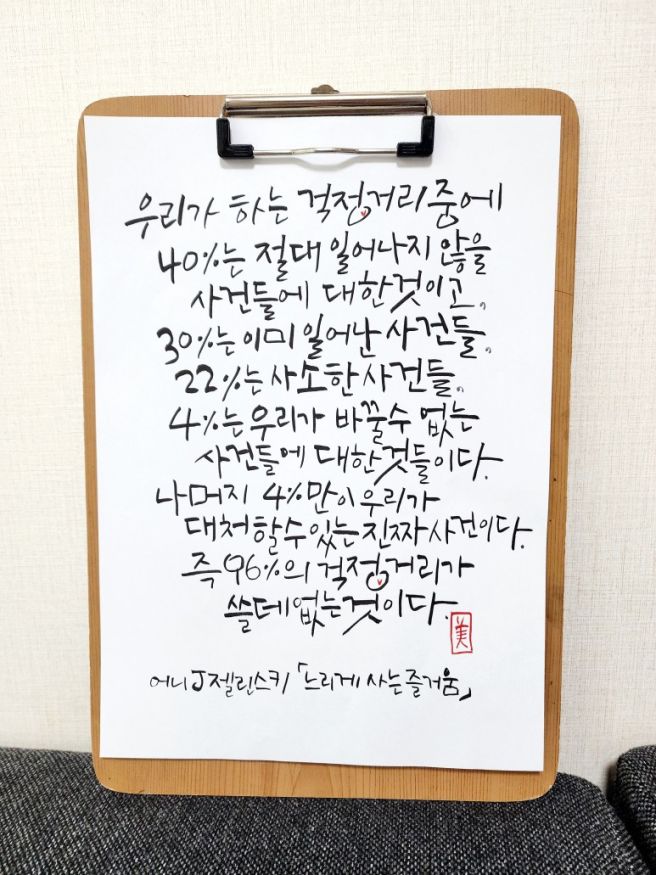 우리가 하는 걱정거리 중에
40%는 절대 일어나지 않을
사건들에 대한것이고,
30%는 이미 일어난 사건들,
22%는 사소한 사건들,
4%는 우리가 바꿀수 없는
사건들에 대한것들이다.
나머지 4%만이 우리가
대처할수있는 진짜사건이다.
즉 96%의 걱정거리가
쓸데없는것이다.
美
어니 J 젤린스키 「느리게 사는 즐거움」